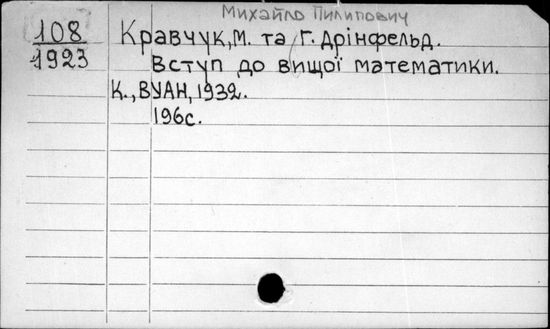 Михайло Пилипович
108
1923
Кравчук, М. та Г. Дрінфельд.
Вступ до вищої математики.
К., ВУАН, 1932.
196с.